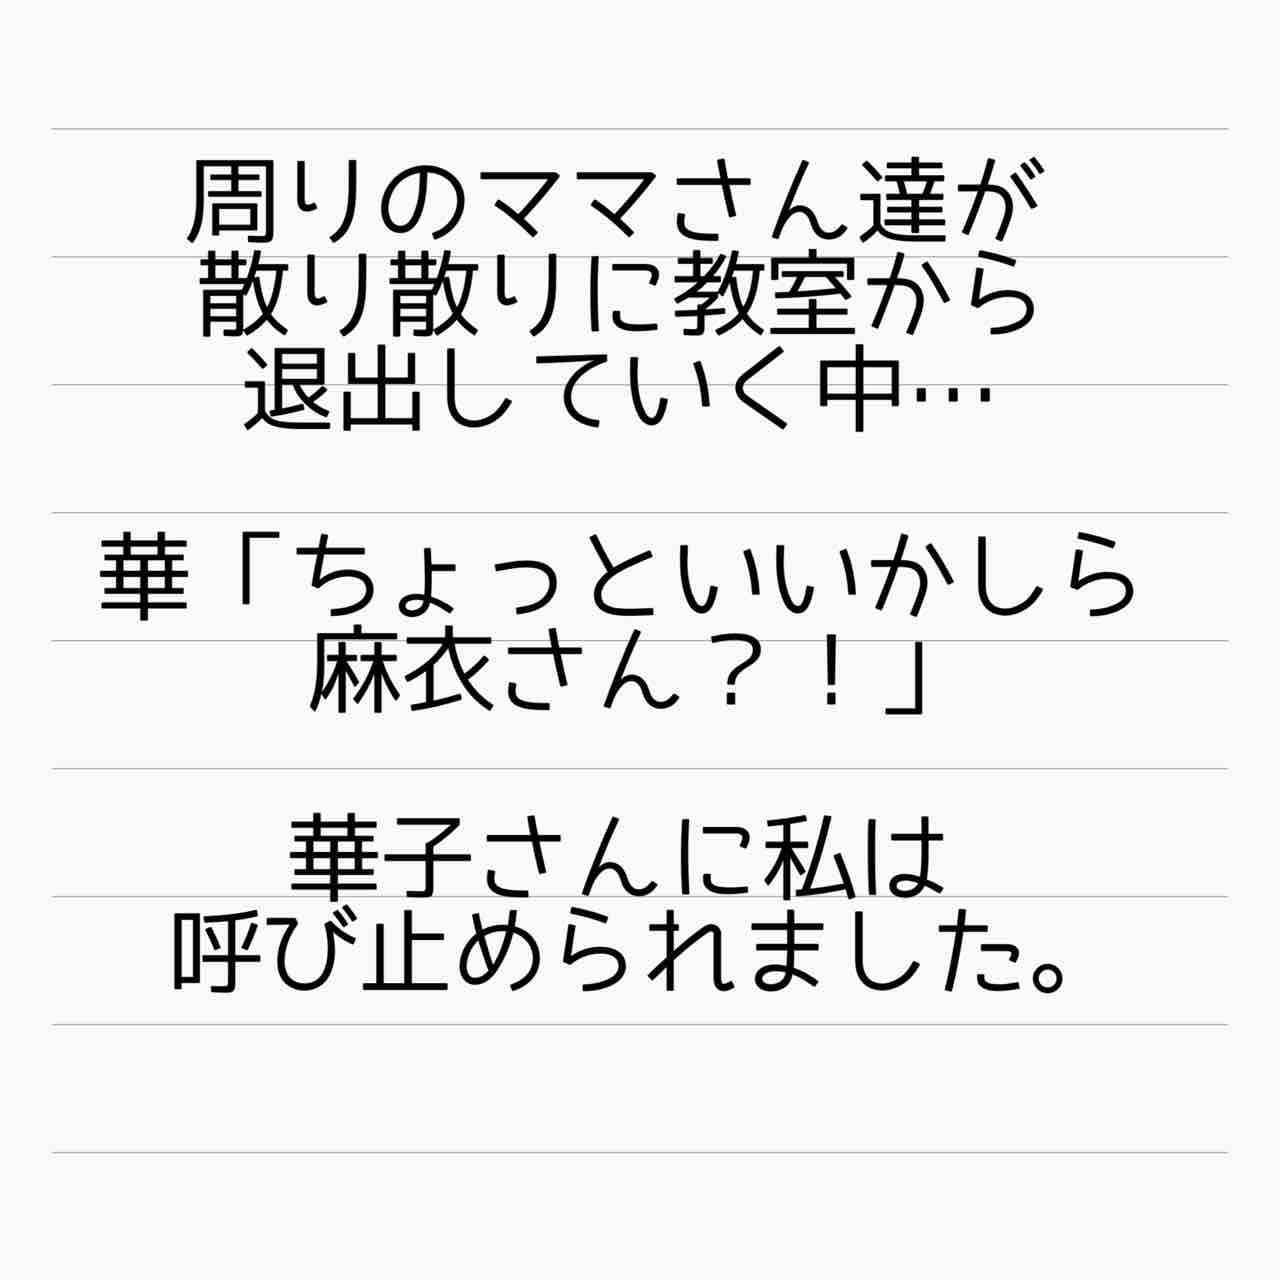 周りのママさん達が
散り散りに教室から
退出していく中…
華「ちょっといいかしら
麻衣さん？！」
華子さんに私は
呼び止められました。